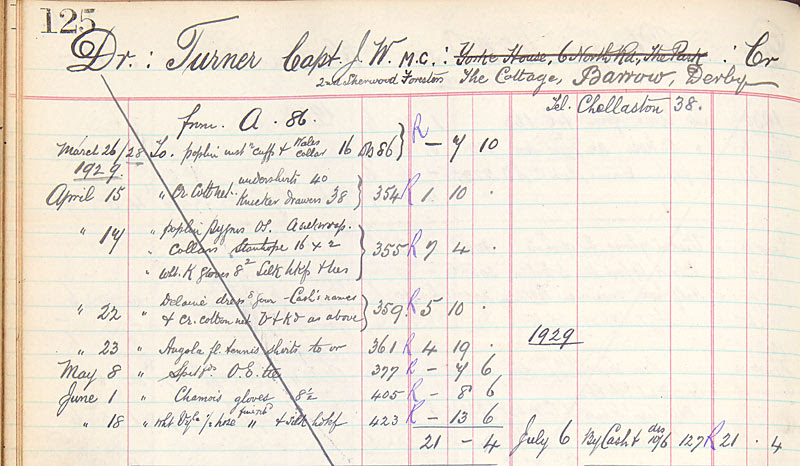 125
Dr. : Turner Capt. J. W. M.C. : Yorke House, 6 North Rd., The Park : Cr
2nd Sherwood Foresters The Cottage, Barrow, Derby
Tel. Chellaston 38.
from A. 86.
March 26/28 To. poplin cuffs & Wales collar 16 86 R – 7 10
1929.
April 15 " Cr. Cott net. undershirts 40
Knicker drawers 38 354 R 1. 10 .
" 17 " poplin
" Collars Stanhope 16 x 2 355 R 7 4 .
" wht. K gloves 8 2 Silk hkfs & ties
" 22 " Delaine dress gown - Cash's names
& Cr. cotton net V & Kd as above 359 R 5 10 .
" 23 " Angola fl. tennis shirts to or 361 R 4 19 .
1929
May 8 " O.E. tie 377 R – 7 6
June 1 " Chamois gloves 8½ 405 R – 8 6
" 18 " wht ½ hose " & silk hdkf 423 R – 13 6
21 – 4 July 6 By Cash & dis 10/6 127 R 21 . 4